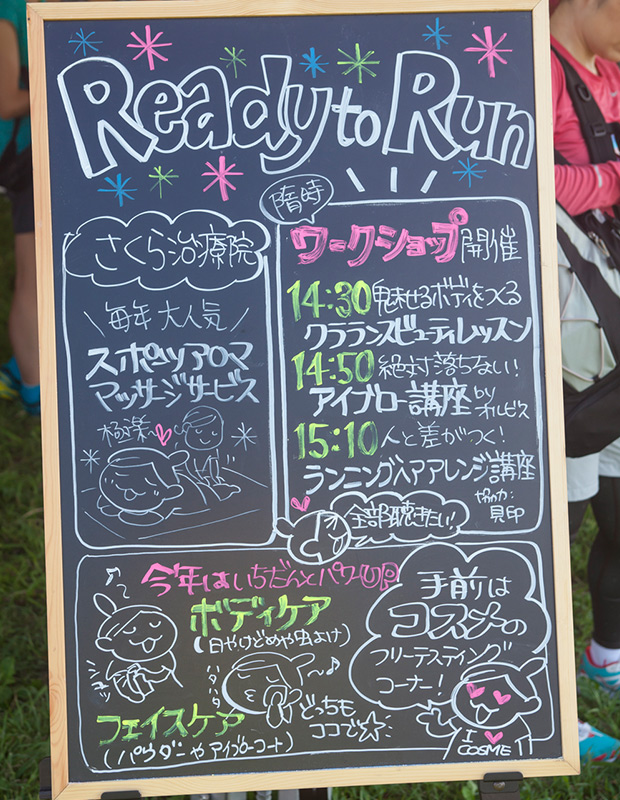 Ready to Run
さくら治療院
\ 毎年大人気 /
スポーツアロマ
マッサージサービス
極楽〜
隋時
ワークショップ開催
14:30 魅せるボディをつくる
クランスビューティレッスン
14:50 絶対落ちない!
アイブロー講座 by オルビス
15:10 人と差がつく!
ランニングヘアアレンジ講座
協力:
貝印
全部聴きたい!
今年はいちだんとパワーUP
ボディケア
(日やけどめや虫よけ)
フェイスケア
(パウダーやアイブローコート)
パタパタ
どっちも
ココで☆
手前は
コスメの
フリーテスティング
コーナー!
I ♥
COSME